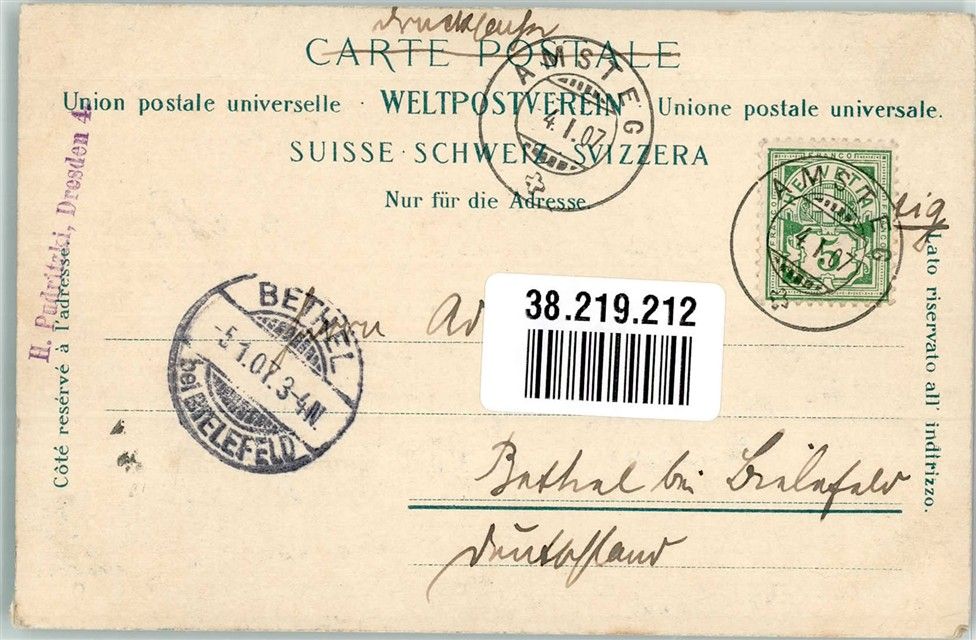 Drucksache
CARTE POSTALE
Union postale universelle · WELTPOSTVEREIN · Unione postale universale.
SUISSE · SCHWEIZ · SVIZZERA
Nur für die Adresse.
AMSTEG
4.I.07
AMSTEG
4.I.07
FRANCO
5
H. Pudritzki, Dresden 4.
Côté resérvé à l'adresse.
Lato riservato all' indirizzo.
BETHEL
-5.1.07.3-4N.
bei BIELEFELD
38.219.212
Bethel bei Bielefeld
Deutschland